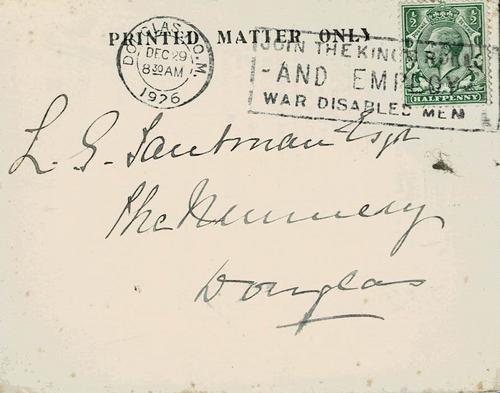 PRINTED MATTER ONLY
DOUGLAS I.O.M.
DEC 29
8 30 AM
1926
JOIN THE KING'S ROLL
-AND EMPLOY-
WAR DISABLED MEN
½ ½
HALFPENNY
L. G. Esqr
The Nunnery
Douglas